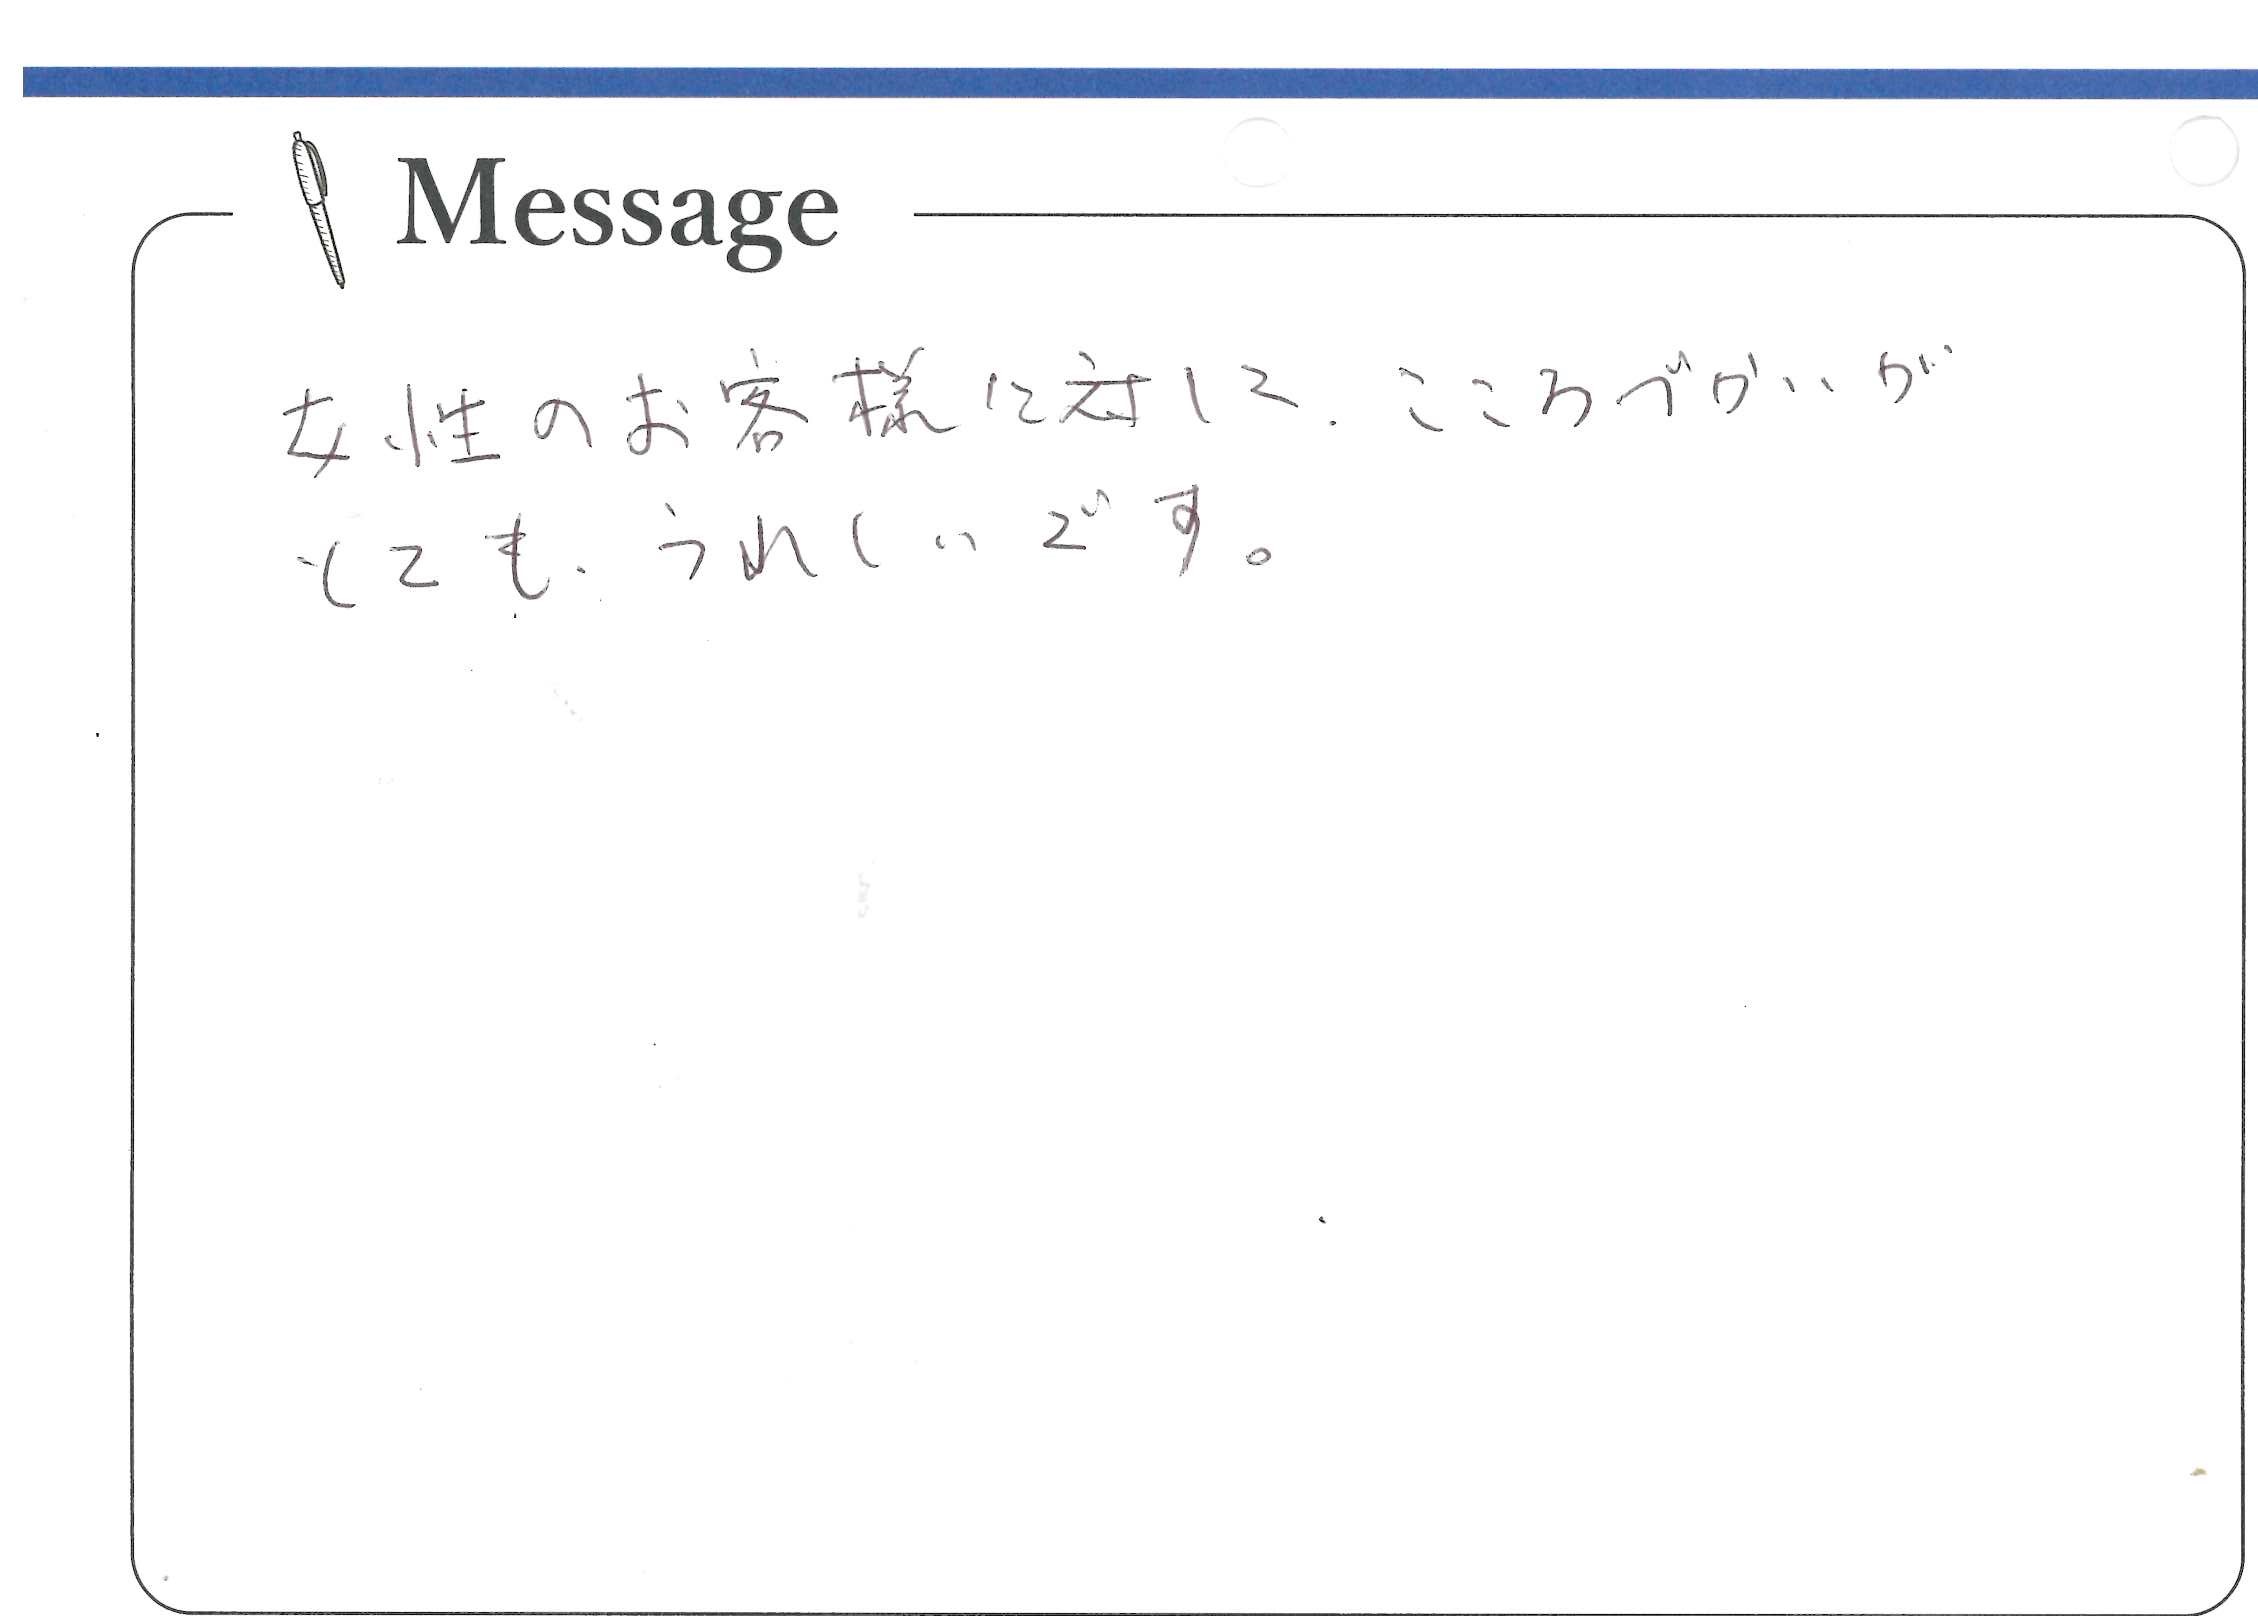 Message
女性のお客様に対して、こころづかいが
とても、うれしいです。